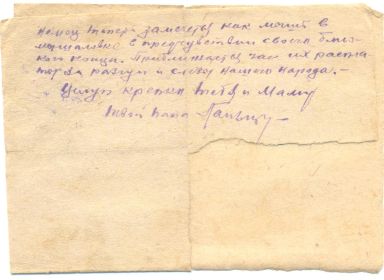 немец теперь заметался как мышь в
мышеловке в предчувствии своего близ-
кого конца. Приближается час их распла-
та за и слезы нашего народа. –
Целую крепко тебя и Маму
твой папа